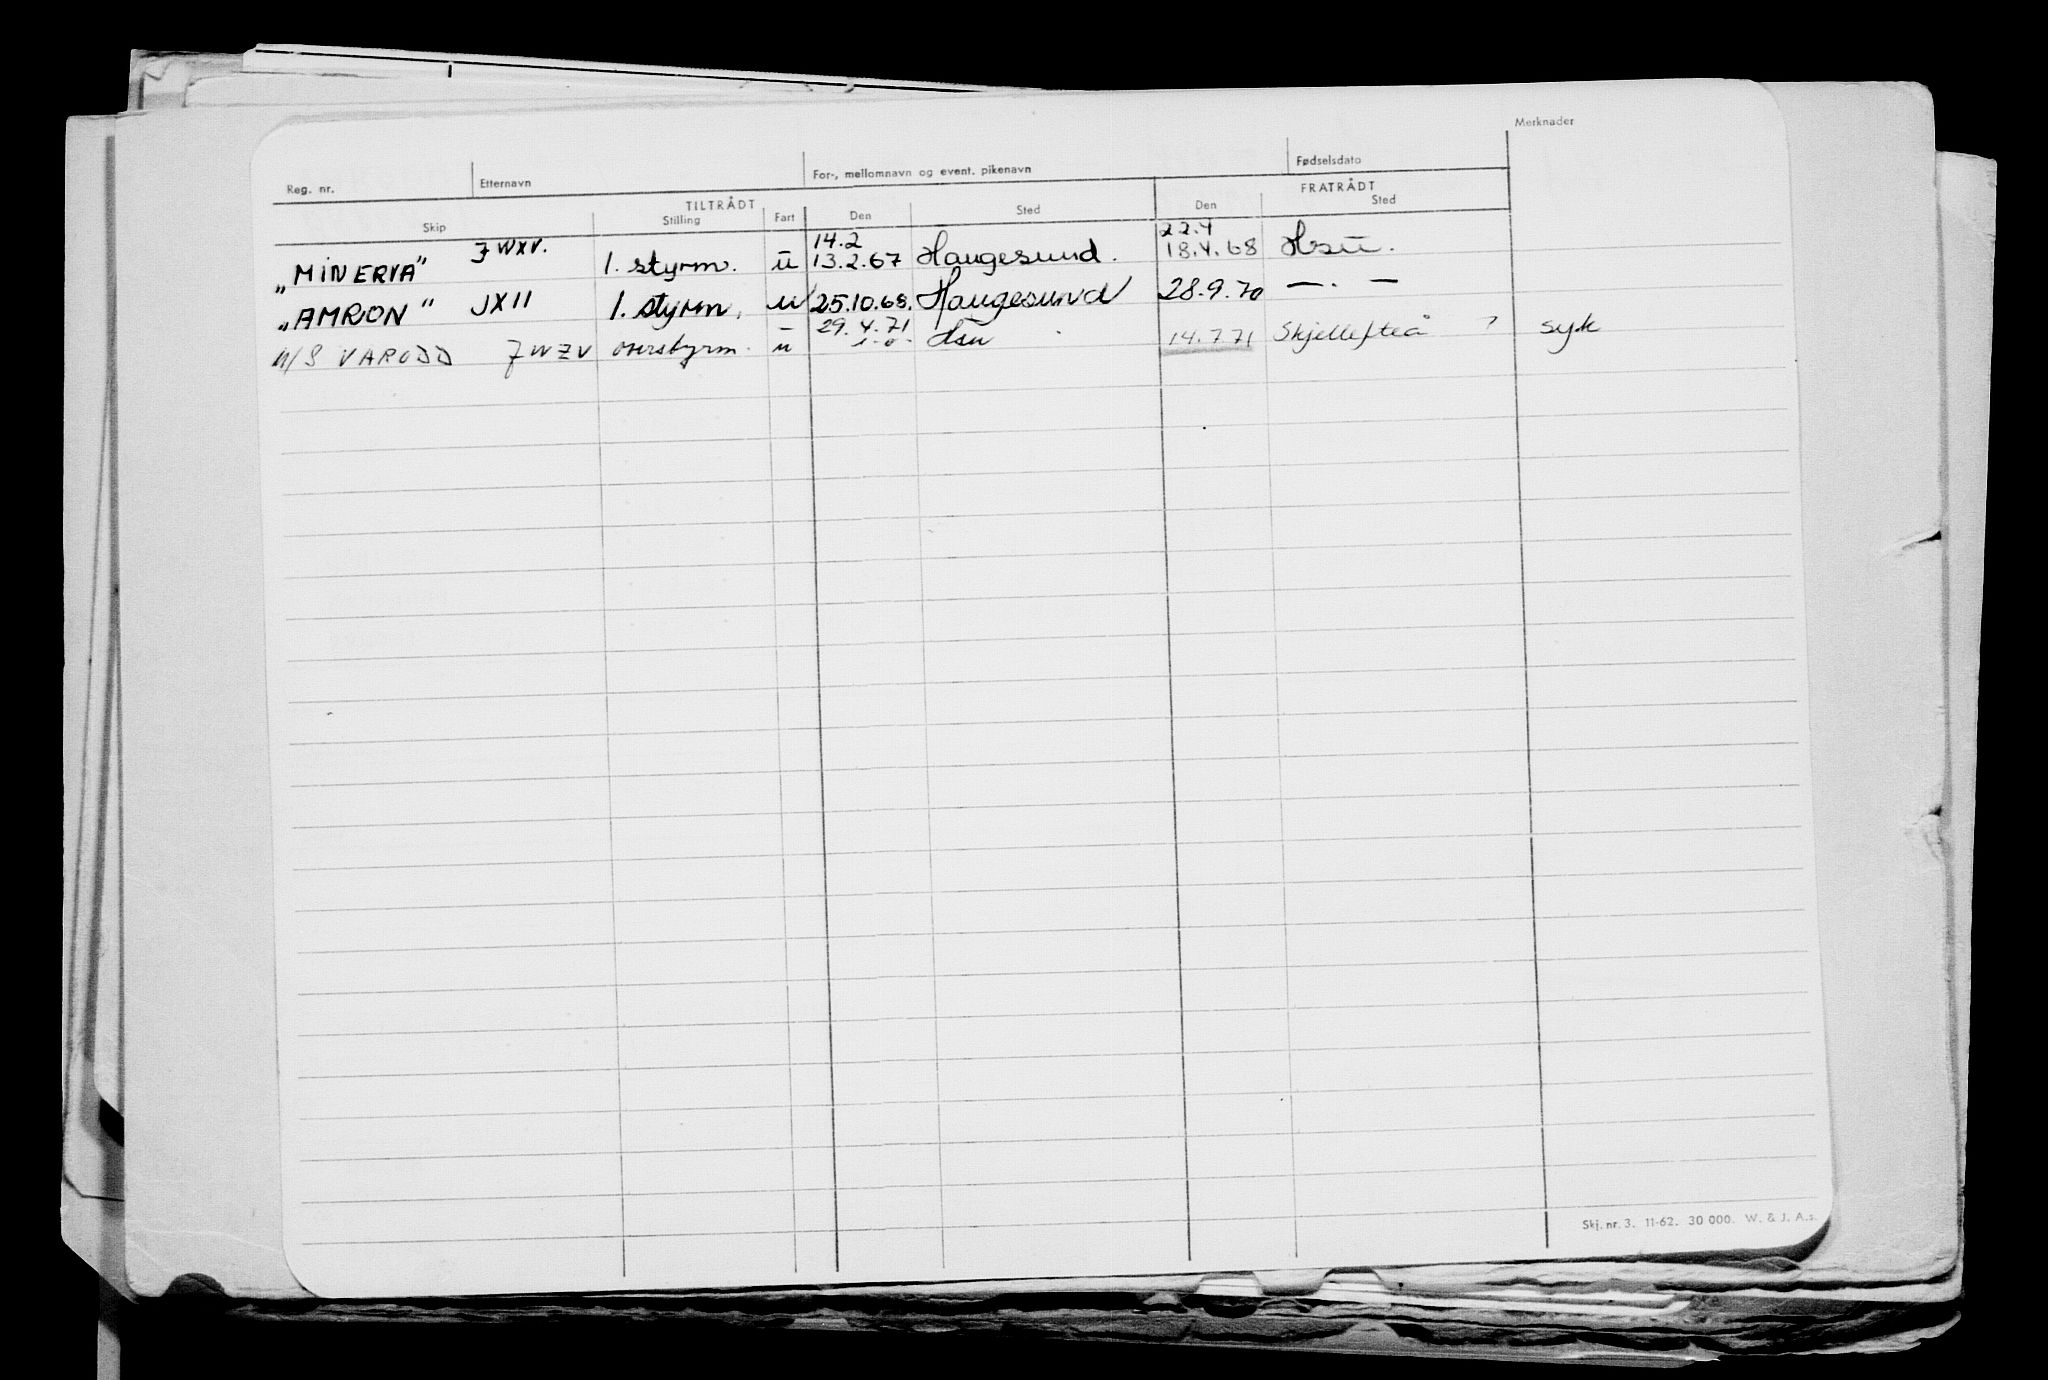 Merknader
Reg. nr. Etternavn For-, mellomnavn og event. pikenavn Fødselsdato
TILTRÅDT FRATRÅDT
Skip Stilling Fart Den Sted Den Sted
14.2 22.4
„MINERVA" JWXV. 1. styrm. ü 13.2.67 Haugesund. 18.4.68 Hsū.
„AMRON" JXII 1. styrm. u 25.10.68. Haugesund 28.9.70 —.—
29.4.71
M/S VARODD JWZV overstyrm. ū Hsu 14.7.71 Skjellefteå ? syk
Skj. nr. 3. 11-62. 30 000. W. & J. A.s.